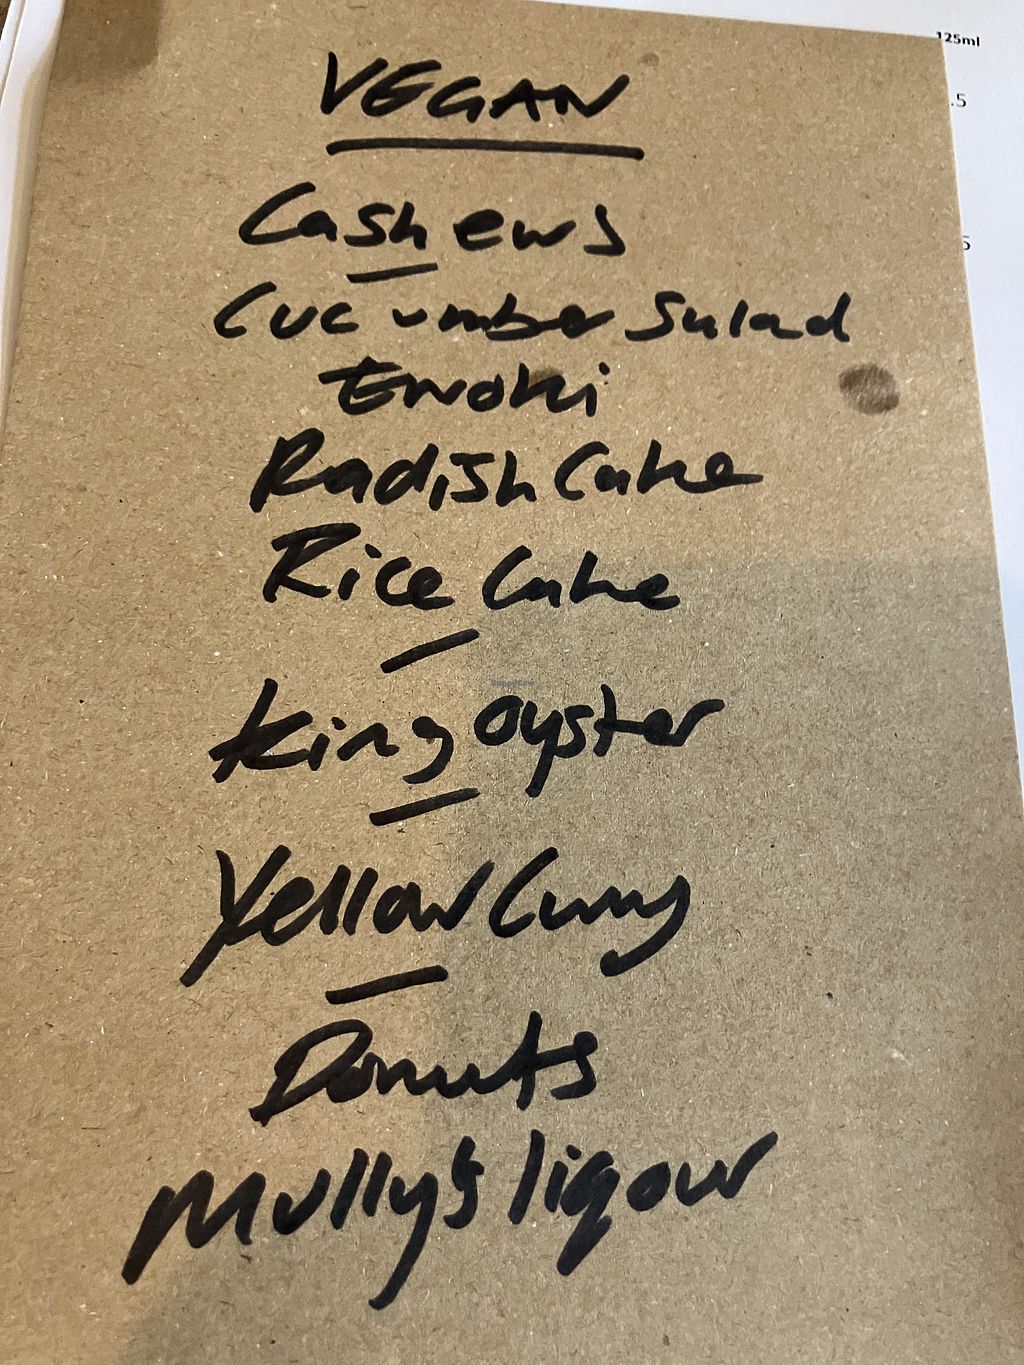 125ml
.5
5
VEGAN
Cashews
Cucumber Salad
Enoki
Radish Cake
Rice Cake
King Oyster
Yellow Curry
Donuts
Mully's liqour
HappyCow